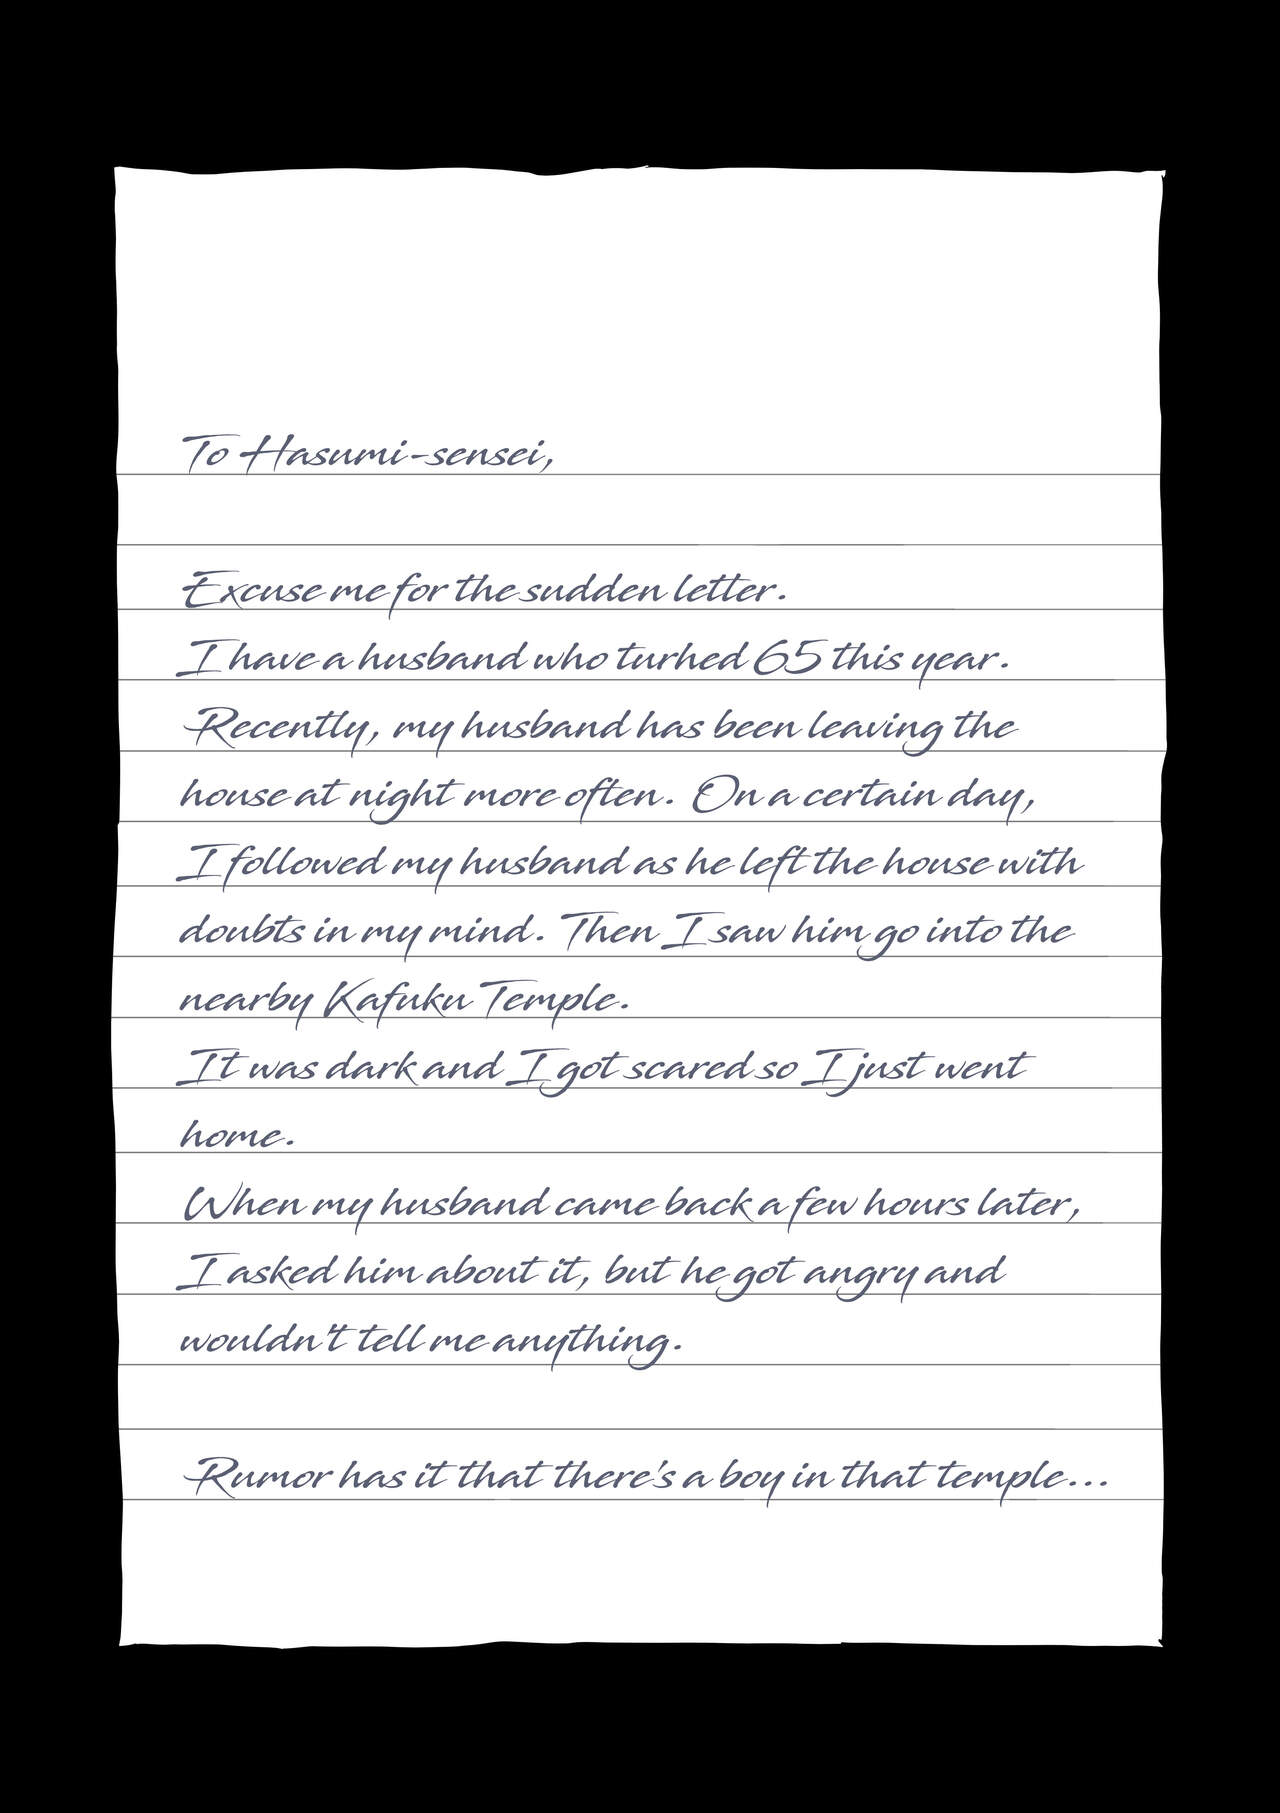 To Hasumi-sensei,
Excuse me for the sudden letter.
I have a husband who turhed 65 this year.
Recently, my husband has been leaving the
house at night more often. On a certain day,
I followed my husband as he left the house with
doubts in my mind. Then I saw him go into the
nearby Kafuku Temple.
It was dark and I got scared so I just went
home.
When my husband came back a few hours later,
I asked him about it, but he got angry and
wouldn't tell me anything.
Rumor has it that there's a boy in that temple...